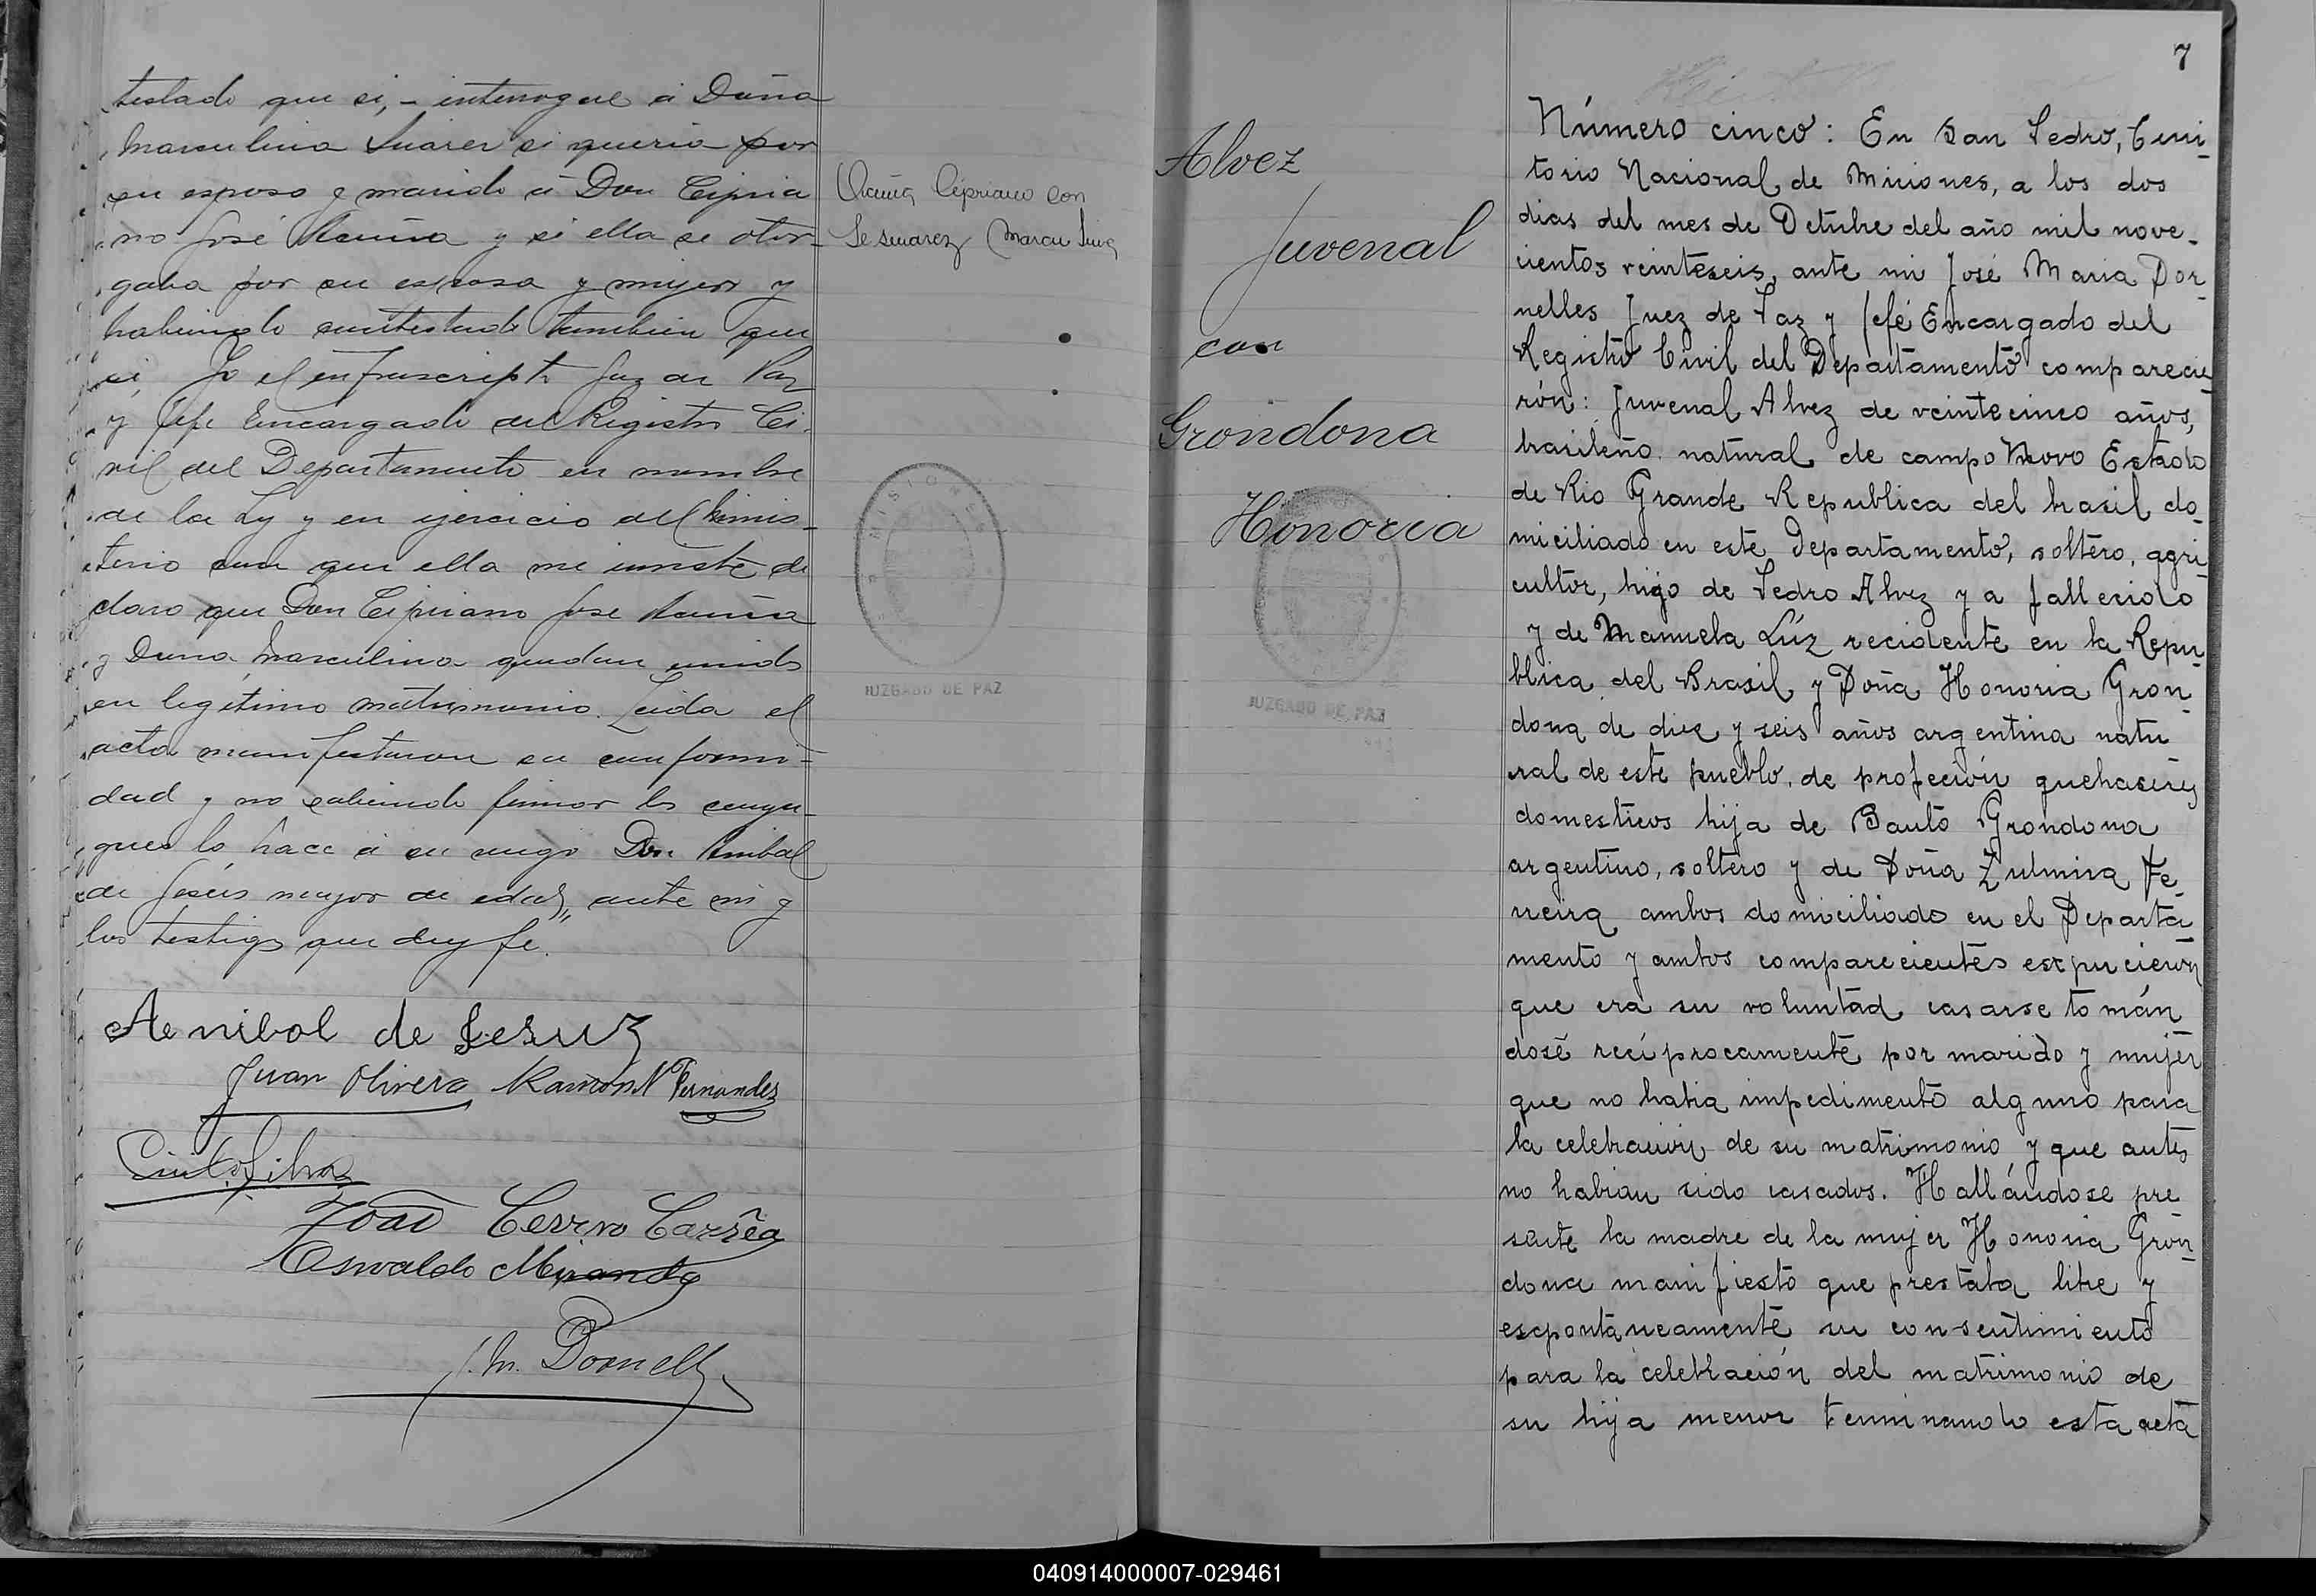 testado que si,- interrogué á Doña
Marculina Suarez si queria por
su esposo y marido á Don Cipria
no José Acuña y si ella se otor-
gaba por su esposa y mujer y
habiendo contestado tambien que
si, Yo el infrascripto Juez de Paz
y Jefe Encargado del Registro Ci-
vil del Departamento en nombre
de la Ley y en ejercicio del Minis-
terio con que ella me inviste de
claro que Don Cipriano Jose Acuña
y Doña Marculina quedan unidos
en legítimo matrimonio. Leida el
acta manifestaron su conformi-
dad y no sabiendo firmar los conyu-
gues lo hace á su ruego Don Anibal
de Jesús mayor de edad, ante mi y
los testigos que doy fe.
Aenibol de Jesuz
Juan Olivera Ramon N Fernandes
Silva
João Correa
Oswaldo Miranda
J. M. Dornelles
Acuña Cipriano con
Suarez Marculina
MISIONES
JUZGADO DE PAZ
7
Alvez
Juvenal
con
Grondona
Honoria
JUZGADO DE PAZ
Número cinco: En San Pedro, Terri-
torio Nacional de Misiones, a los dos
dias del mes de Octubre del año mil nove-
cientos veinteseis, ante mi José Maria Dor-
nelles Juez de Paz y Jefe Encargado del
Registro Civil del Departamento comparecie
rón: Juvenal Alvez de veintecinco años,
brasileño natural de campo Nuovo Estado
de Rio Grande Republica del brasil do-
miciliado en este Departamento, soltero, agri-
cultor, hijo de Pedro Alvez y a fallecido
y de Manuela Lúz recidente en la Repu-
blica del Brasil y Doña Honoria Gron-
dona de diez y seis años argentina natu
ral de este pueblo, de profeción quehaseres
domesticos hija de Bauto Grondona
argentino, soltero y de Doña Zulmira Fe-
rreira ambos domiciliado en el Departa-
mento y ambos comparecientes expucieron
que era su voluntad casarse tomán
dosé recíprocamente por marido y mujer
que no habia impedimento alguno para
la celebración de su matrimonio y que antes
no habian sido casados. Hallándose pre
sente la madre de la mujer Honoria Gron-
dona manifiesto que prestaba libre y
escpontaneamente su consentimiento
para la celebración del matrimonio de
su hija menor terminando esta acta
040914000007-029461